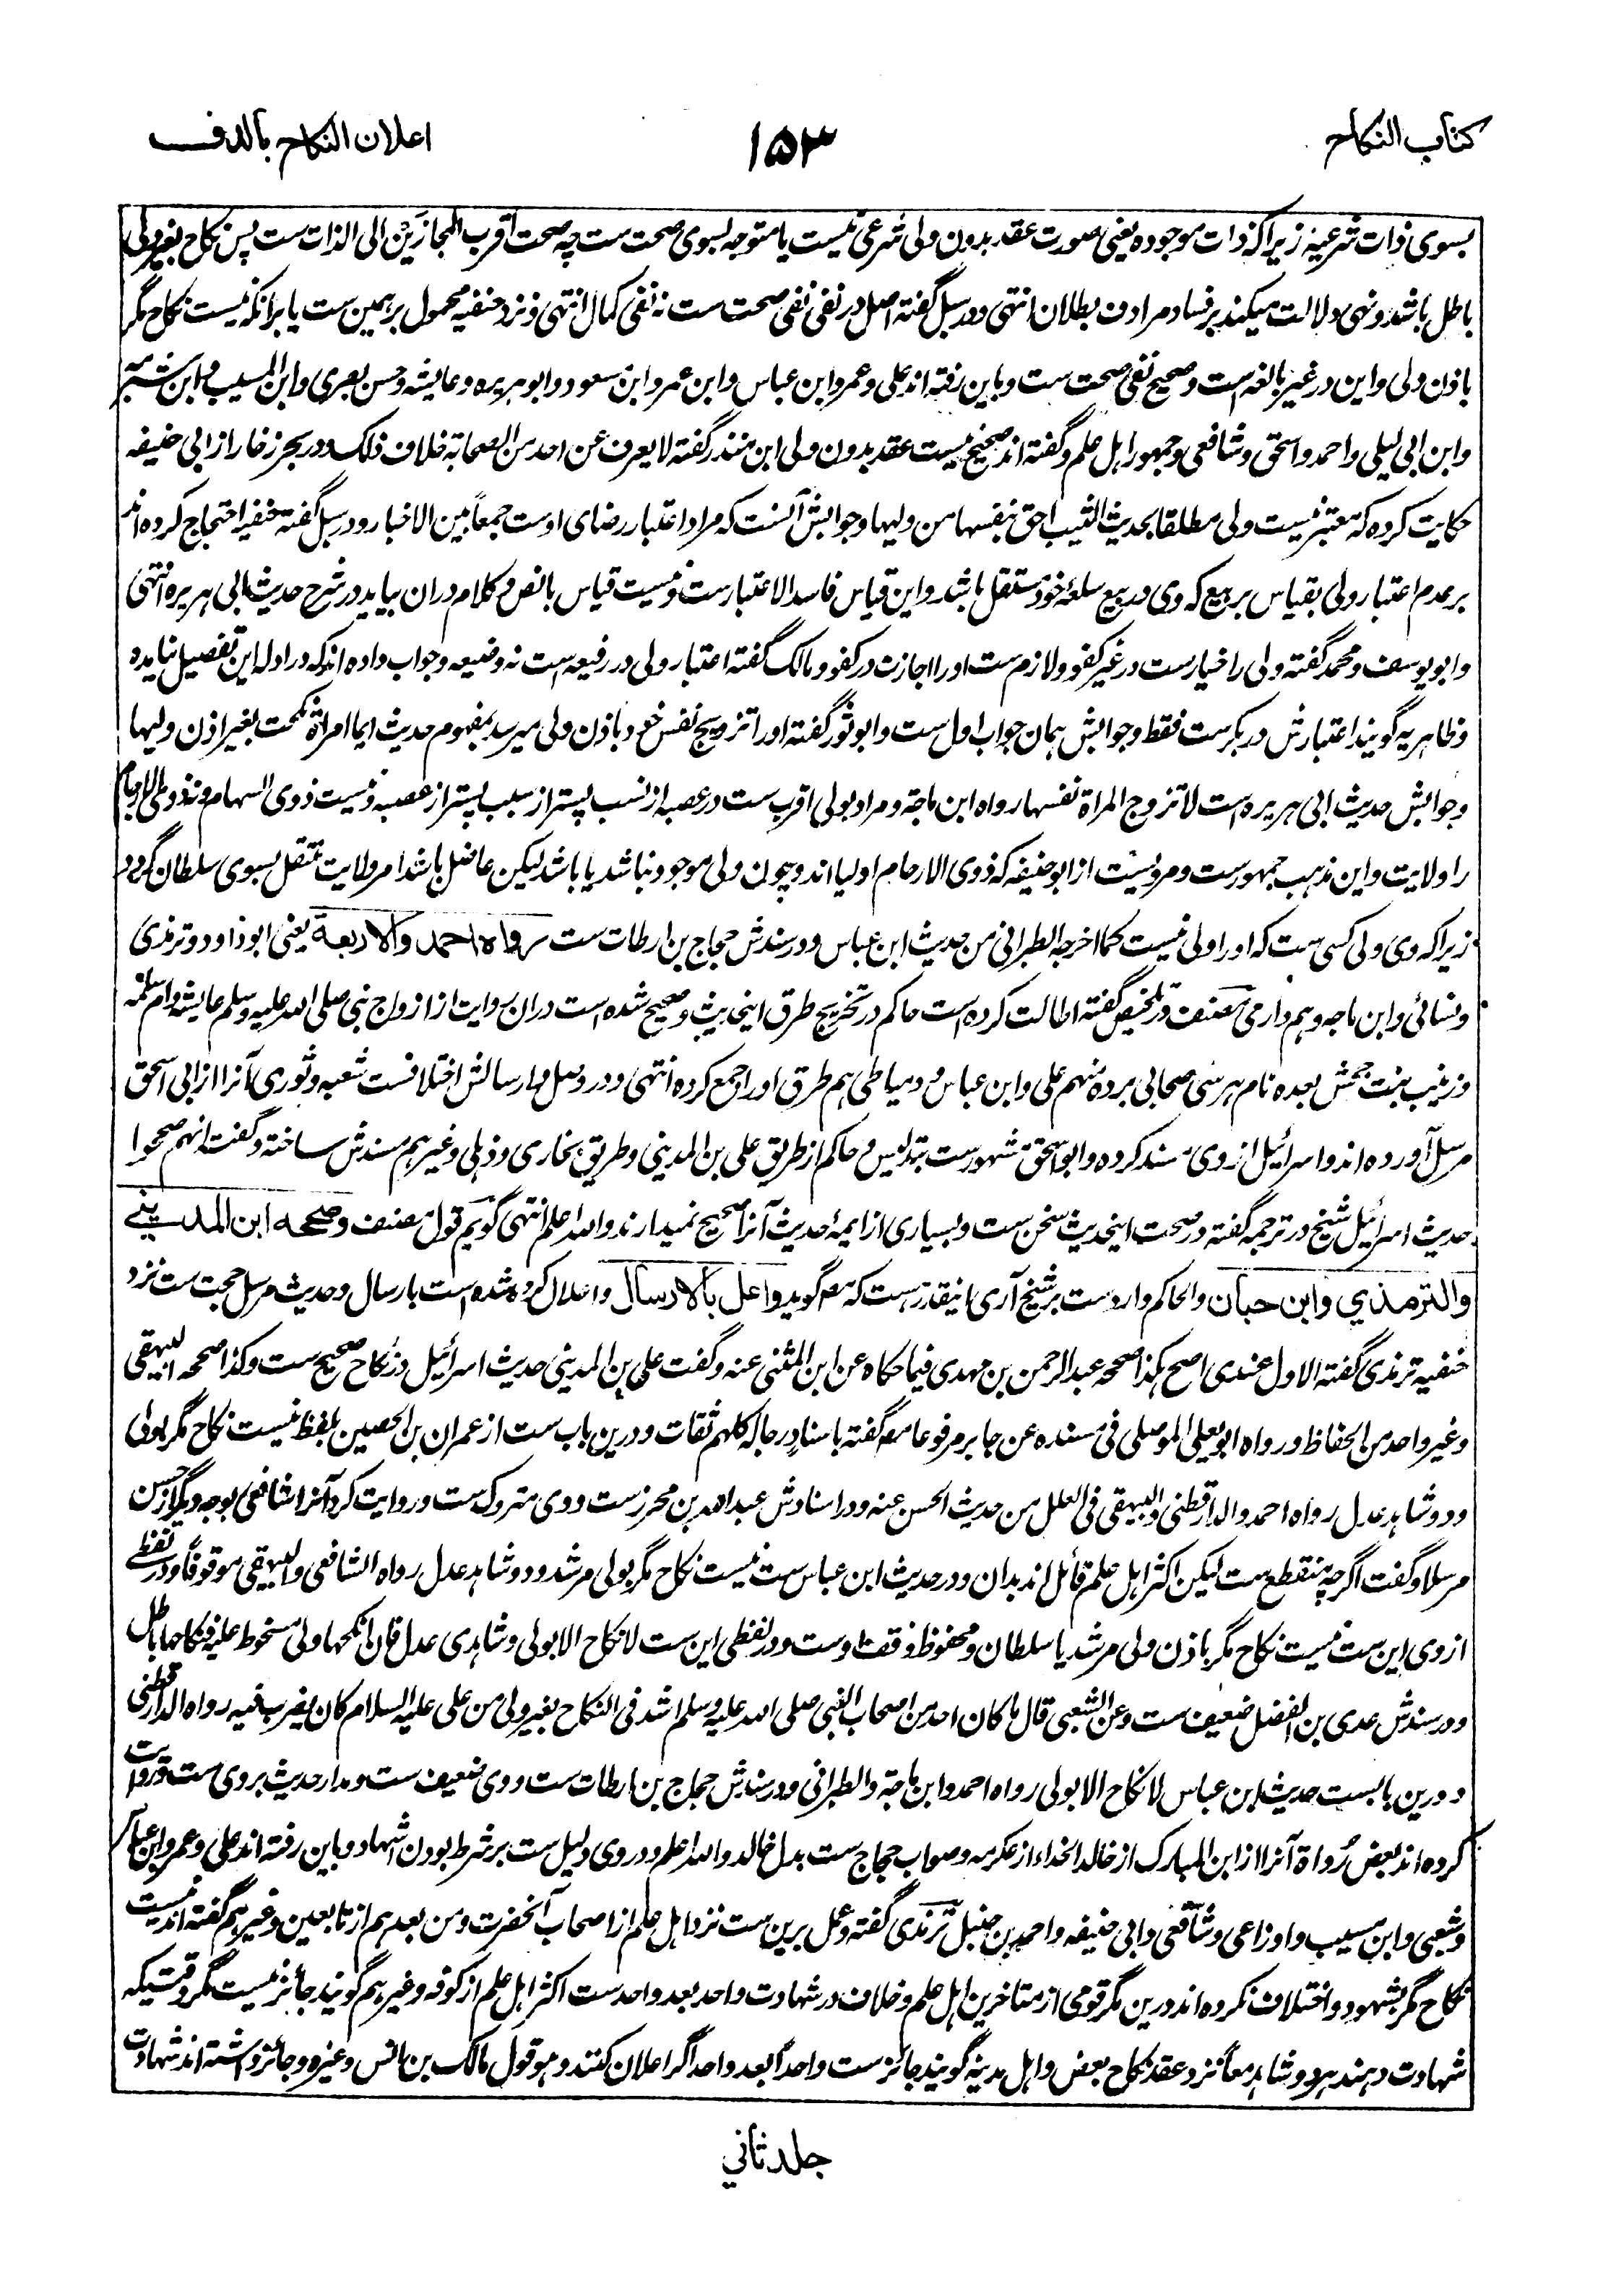 كتاب النكاح
۱۵۳
اعلان النكاح بالدف
بسوی ذات شرعیه زیراکه ذات موجوده یعنی صورت عقد بدون ولی شرعی نیست یا متوجه بسوی صحت ست چه صحت اقرب المجازین الی الذات ست پس نکاح بغیر ولی
باطل باشد و نهی دلالت میکند بر فساد مرادف بطلان انتهی و در سبل گفته اصل در نفی نفی صحت ست نه نفی کمال انتهی و نزد حنفیه محمول بر همین ست یا برانکه نیست نکاح مگر
باذن ولی و این در غیر بالغه است و صحیح نفی صحت ست و باین رفته اند علی و عمر و ابن عباس و ابن عمر و ابن مسعود و ابو هریره و عایشه و حسن بصری و ابن المسیب و ابن شبرمه
و ابن ابی لیلی و احمد و اسحق و شافعی و جمهور اهل علم و گفته اند صحیح نیست عقد بدون ولی ابن منذر گفته لا یعرف عن احد من الصحابة خلاف ذلک و در بحر زخار از ابی حنیفه
حکایت کرده که معتبر نیست ولی مطلقا بحدیث الثیب احق بنفسها من ولیها و جوابش آنست که مراد اعتبار رضای اوست جمعاً بین الاخبار و در سبل گفته حنفیه احتجاج کرده اند
بر عدم اعتبار ولی بقیاس بر بیع که وی در بیع سلعهٔ خود مستقل باشد و این قیاس فاسد الاعتبارست و نیست قیاس با نص و کلام دران بیاید در شرح حدیث ابی هریره انتهی
و ابو یوسف و محمد گفته ولی را خیارست در غیر کفو و لازم ست او را اجازت در کفو و مالک گفته اعتبار ولی در رفیعه است نه وضیعه و جواب داده اند که در ادله این تفصیل نیامده
و ظاهریه گویند اعتبارش در بکرست فقط و جوابش همان جواب اول ست و ابو ثور گفته او را تزویج نفس خود باذن ولی میرسد بمفهوم حدیث ایما امراة نکحت بغیر اذن ولیها
و جوابش حدیث ابی هریره ست لا تزوج المراة نفسها رواه ابن ماجة و مراد بولی اقرب ست در عصبه از نسب پستر از سبب پستر از عصبه و نیست ذوی السهام و نه ذوی الارحام
را ولایت و این مذهب جمهورست و مرویست از ابو حنیفه که ذوی الارحام اولیا اند و چون ولی موجود نباشد یا باشد لیکن عاضل باشد امر ولایت منتقل بسوی سلطان گردد
زیراکه وی ولی کسی ست که او را ولی نیست کما اخرجه الطبرانی من حدیث ابن عباس و در سندش حجاج بن ارطات ست رواه احمد والاربعة یعنی ابو داود و ترمذی
و نسائی و ابن ماجه و هم دارمی مصنف در تلخیص گفته اطالت کرده است حاکم در تخریج طرق اینحدیث و صحیح شده است دران روایت از ازواج نبی صلی الله علیه وسلم عایشه و ام سلمه
و زینب بنت جحش بعده نام هر سی صحابی برده منهم علی و ابن عباس و دمیاطی هم طرق او را جمع کرده انتهی و در وصل و ارسالش اختلافست شعبه و ثوری آنرا از ابی اسحق
مرسل آورده اند و اسرائیل از وی مسند کرده و ابو اسحق مشهورست بتدلیس و حاکم از طریق علی بن المدینی و طریق بخاری و ذهلی و غیرهم مسندش ساخته و گفته انهم صححوا
حدیث اسرائیل شیخ در ترجمه گفته در صحت اینحدیث سخن ست و بسیاری از ایمهٔ حدیث آنرا صحیح نمیدارند والله اعلم انتهی گویم قول مصنف وصححه ابن المديني
والترمذي وابن حبان والحاکم واردست بر شیخ آری اینقدر هست که مصه گوید واعل بالارسال و اعلال کرده شده است بارسال و حدیث مرسل حجت ست نزد
حنفیه ترمذی گفته الاول عندی اصح هکذا صححه عبد الرحمن بن مهدی فیما حکاه عن ابن المثنی عنه و گفت علی بن المدینی حدیث اسرائیل در نکاح صحیح ست و کذا صححه البیهقی
و غیر واحد من الحفاظ و رواه ابو یعلی الموصلی فی مسنده عن جابر مرفوعا مصه گفته باسناد رجاله کلهم ثقات و درین باب ست از عمران بن الحصین بلفظ نیست نکاح مگر بولی
و دو شاهد عدل رواه احمد و الدارقطنی و البیهقی فی العلل من حدیث الحسن عنه و در اسنادش عبد الله بن محرزست و وی متروک ست و روایت کرد آنرا شافعی بوجه دیگر از حسن
مرسلا و گفت اگرچه منقطع ست لیکن اکثر اهل علم قائل اند بدان و در حدیث ابن عباس ست نیست نکاح مگر بولی مرشد و دو شاهد عدل رواه الشافعی و البیهقی موقوفاً و در لفظی
از وی این ست نیست نکاح مگر باذن ولی مرشد یا سلطان و محفوظ وقف اوست و در لفظی این ست لا نکاح الا بولی و شاهدی عدل فان انکحها ولی مسخوط علیه فنکاحها باطل
و در سندش عدی بن الفضل ضعیف ست و عن الشعبی قال ما کان احد من اصحاب النبی صلی الله علیه وسلم اشد فی النکاح بغیر ولی من علی علیه السلام کان یضرب فیه رواه الدارقطنی
و درین بابست حدیث ابن عباس لا نکاح الا بولی رواه احمد و ابن ماجة و الطبرانی و در سندش حجاج بن ارطات ست و وی ضعیف ست و مدار حدیث بر وی ست و روایت
کرده اند بعض رُواة آنرا از ابن المبارک از خالد الحذاء از عکرمه و صواب حجاج ست بدل خالد والله اعلم و در وی دلیل ست بر شرط بودن اشهاد و باین رفته اند علی و عمر و ابن عباس
و شعبی و ابن مسیب و اوزاعی و شافعی و ابی حنیفه و احمد بن حنبل ترمذی گفته و عمل برین ست نزد اهل علم از اصحاب آنحضرت و من بعد هم از تابعین و غیرهم گفته اند نیست
نکاح مگر بشهود و اختلاف نکرده اند درین مگر قومی از متاخرین اهل علم و خلاف در شهادت واحد بعد واحد ست اکثر اهل علم از کوفه و غیرهم گویند جائز نیست مگر وقتیکه
شهادت دهند هر دو شاهد معاً نزد عقد نکاح بعض و اهل مدینه گویند جائزست واحداً بعد واحد اگر اعلان کنند و هو قول مالک بن انس و غیره و جائز داشته اند شهادت
جلد ثاني